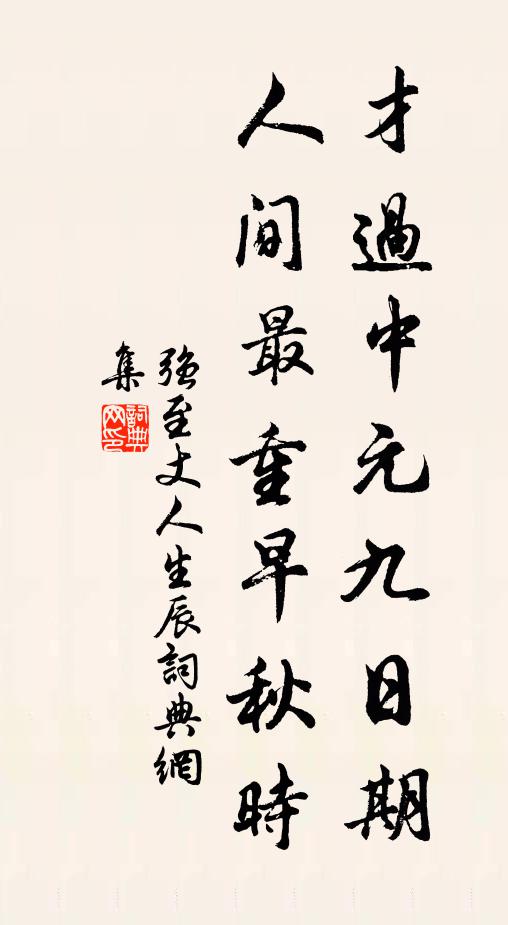 才過中元九日期
人间最重早秋時
强至丈人生辰詞典網
集
詞典
网印